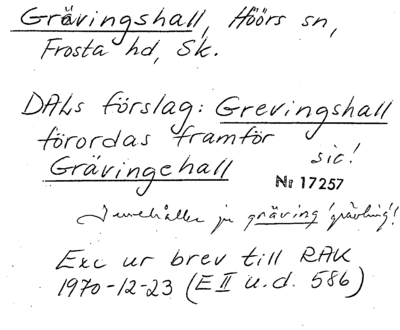 Grävingshall, Höörs sn,
Frosta hd, Sk.
DALs förslag: Grevingshall
förordas framför
sic!
Grävingehall
Nr 17257
Innehåller ju gräving 'grävling'!
Exc ur brev till RAK
1970-12-23 (E II u.d. 586)